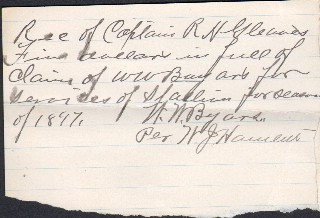 Rec of Captain R H Gleaves
Five dollars in full of
claim of W W Byars for
services of Stallion for season
of 1897.
W. W. Byars.
Per. W J